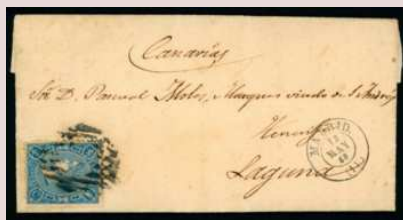 Canarias
Sor. D. Pascual Molo, Marques viudo de S. Andrés
Laguna
MADRID
12
MAY